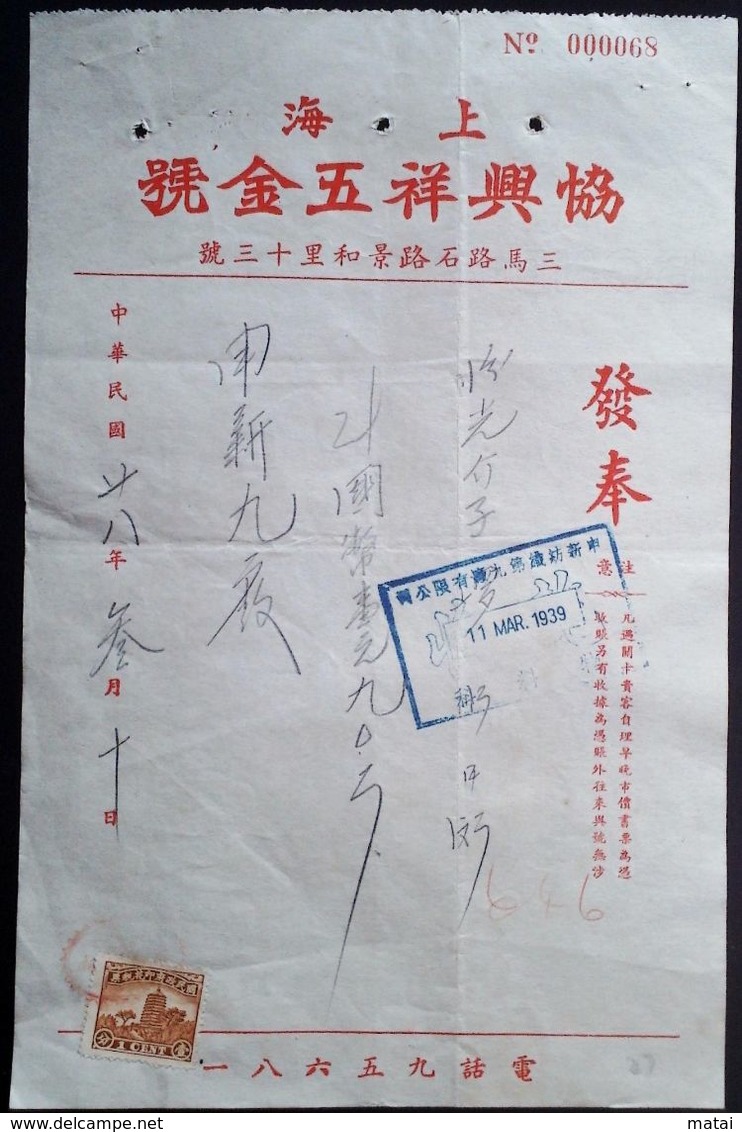 Nº 000068
上海
協興祥五金號
三馬路石路景和里十三號
發奉
注意
凡過關卡貴客自理早晚市價書票為憑
收賬另有收據為憑賬外往來與號無涉
申新紡織第九廠有限公司
11 MAR. 1939
計國幣壹元九
申新九廠
中華民國廿八年叁月十日
646
國民政府印花稅票
1 CENT
壹分
電話九五六八一
27
matai